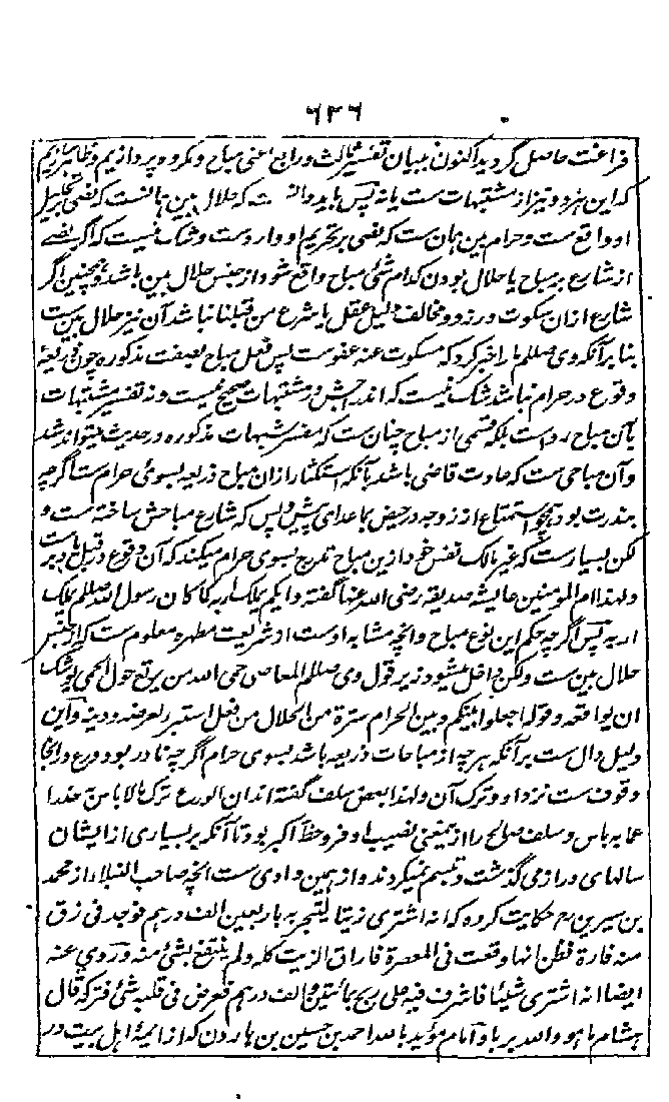 ۶۳۶
فراغت حاصل گردید اکنون ببیان تفسیر ثالث و رابع اعنی مباح و مکروه پردازیم و ظاهر سازیم
که این هردو نیز از مشتبهات ست یا نه پس باید دانست که حلال بین آنست که نص بتحلیل
او واقع ست و حرام بین همان ست که نص بر تحریم او وارد ست و شک نیست که اگر نصے
از شارع بر مباح یا حلال بودن کدام شئ مباح واقع شود از جنس حلال بین باشد و همچنین اگر
شارع ازان سکوت ورزد و مخالف دلیل عقل یا شرع من قبلنا نباشد آن نیز حلال بین ست
بنا بر آنکه وی صللم ما را خبر کرد که مسکوت عنه عفو ست پس فعل مباح بصفت مذکوره چون ذریعهٔ
وقوع در حرام نباشد شک نیست که اندراجش در مشتبهات صحیح نیست و نه تفسیر مشتبهات
بآن مباح رواست بلکه قسمی از مباح چنان ست که مفسر شبهات مذکوره در حدیث میتواند شد
وآن مباحی ست که عادت قاضی باشد بآنکه استکثار ازان مباح ذریعه بسوئ حرام ست اگرچه
بندرت بود همچو استمتاع از زوجه در حیض بما عدای پیش و پس که شارع مباحش ساخته ست و
لکن بسیار ست که غیر مالک نفس خود ازین مباح تدریج بسوی حرام میکند که آن وقوع در قبل ست یا دبر
و لهذا ام المومنین عایشه صدیقه رضی الله عنها گفته و ایکم یملک اربه کما کان رسول الله صللم یملک
اربه پس اگرچه حکم این نوع مباح و انچه مشابه اوست از شریعت مطهره معلوم ست که از جنس
حلال بین ست ولکن داخل میشود زیر قول وی صللم المعاصی حمی الله من یرتع حول الحمی یوشک
ان یواقعه و قوله اجعلوا بینکم وبین الحرام سترة من الحلال من فعل استبرأ لعرضه ودینه واین
دلیل دال ست بر آنکه هرچه از مباحات ذریعه باشد بسوی حرام اگرچه نادر بود ورع دران
وقوف ست نزد او و ترک آن ولهذا بعض سلف گفته اند ان الورع ترک ما لا باس به حذرا
عما به باس و سلف صالح را ازین معنی نصیب اوفر و حظ اکبر بود تا آنکه بر بسیاری از ایشان
سالهای دراز می گذشت و تبسم نمیکردند و از همین وادی ست انچه صاحب النبلاء از محمد
بن سیرین رح حکایت کرده که انه اشتری زیتا لیتجر به باربعین الف درهم فوجد فی زق
منه فارة فظن انها وقعت فی المعصرة فاراق الزیت کله ولم ینتفع بشئ منه و روی عنه
ایضا انه اشتری شیئا فاشرف فیه علی ربح بمائتین الف درهم فعرض فی قلبه شئ فترکه قال
هشام ما هو والله بربا و امام مؤید بالله احمد بن حسین بن هارون که از ائمهٔ اهل بیت در